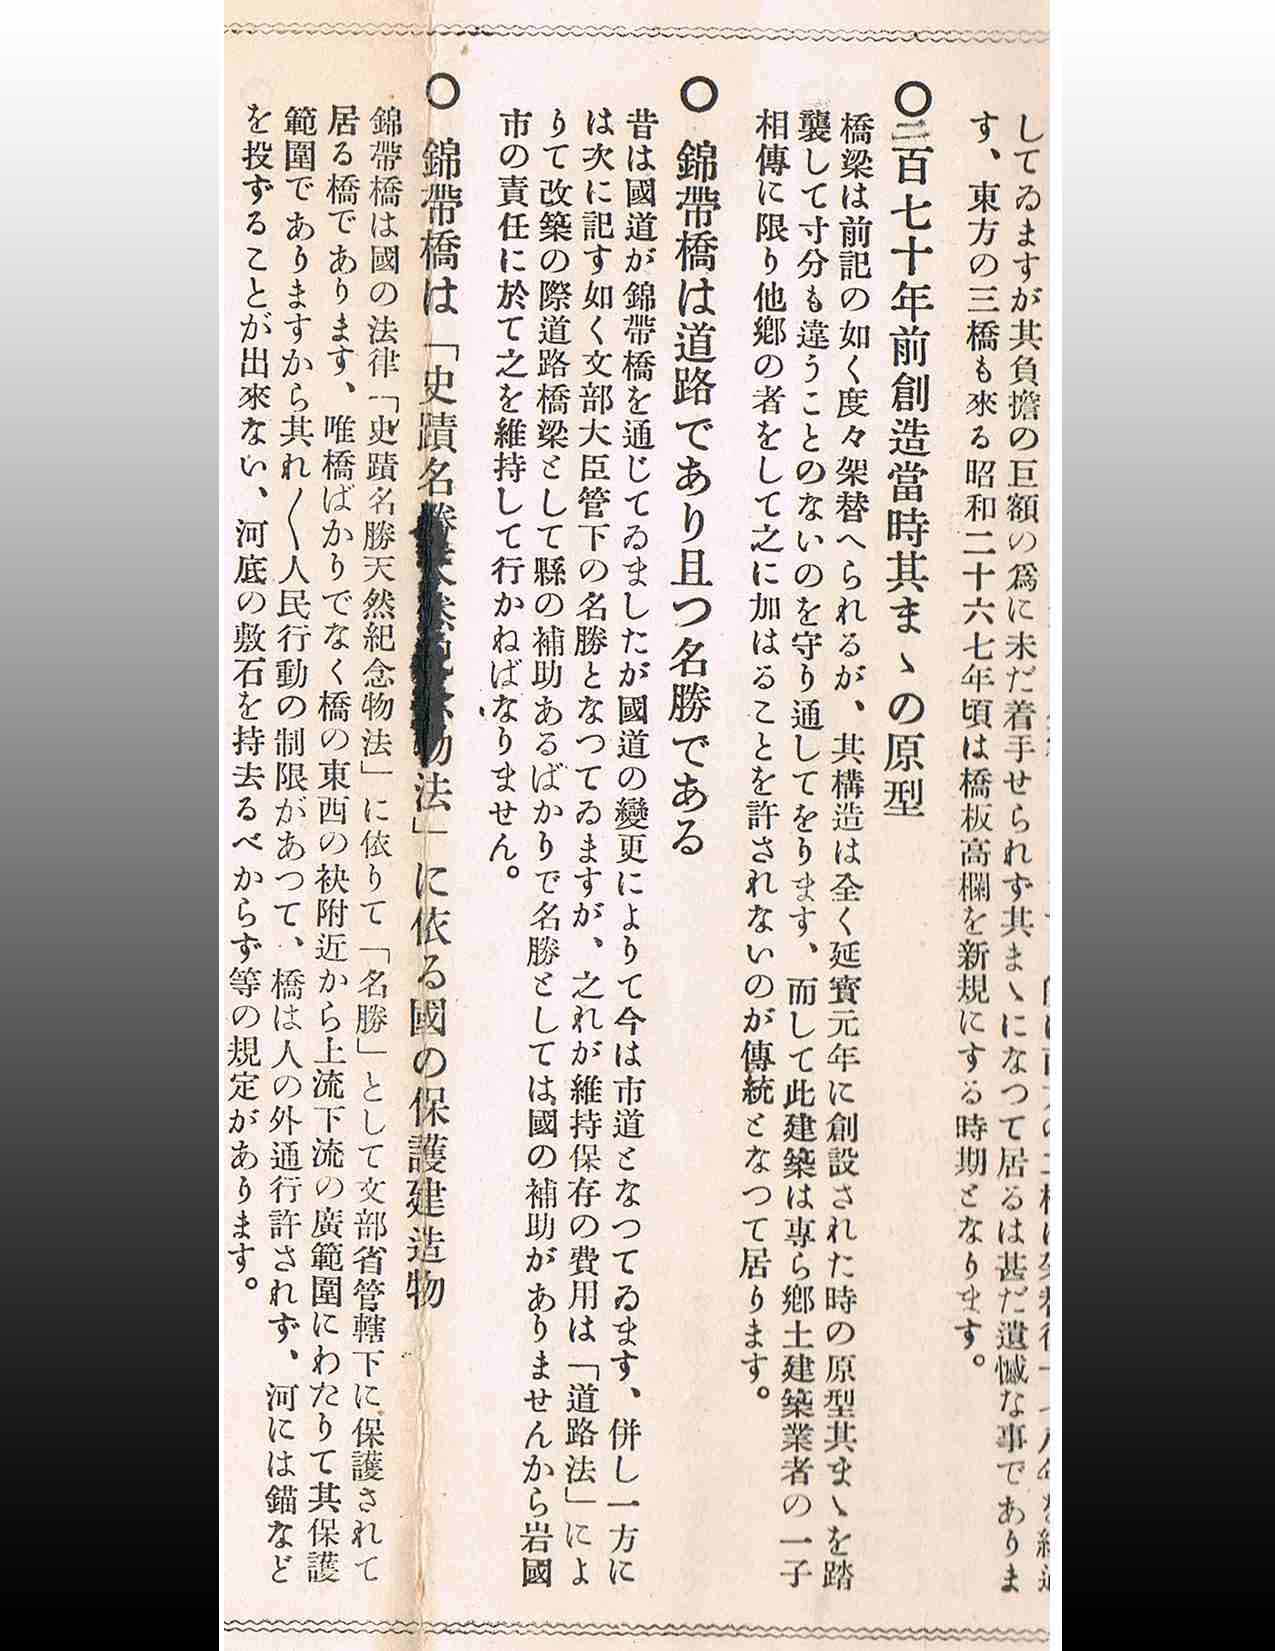 してゐますが其負擔の巨額の爲に未だ着手せられず其まゝになつて居るは甚だ遺憾な事でありま
す、東方の三橋も來る昭和二十六七年頃は橋板高欄を新規にする時期となります。
〇二百七十年前創造當時其まゝの原型
橋梁は前記の如く度々架替へられるが、其構造は全く延寳元年に創設された時の原型其まゝを踏
襲して寸分も違うことのないのを守り通してをります、而して此建築は專ら鄕土建築業者の一子
相傳に限り他鄕の者をして之に加はることを許されないのが傳統となつて居ります。
〇 錦帶橋は道路であり且つ名勝である
昔は國道が錦帶橋を通じてゐましたが國道の變更によりて今は市道となつてゐます、併し一方に
は次に記す如く文部大臣管下の名勝となつてゐますが、之れが維持保存の費用は「道路法」によ
りて改築の際道路橋梁として縣の補助あるばかりで名勝としては國の補助がありませんから岩國
市の責任に於て之を維持して行かねばなりません。
〇 錦帶橋は「史蹟名勝天然紀念物法」に依る國の保護建造物
錦帶橋は國の法律「史蹟名勝天然紀念物法」に依りて「名勝」として文部省管轄下に保護されて
居る橋であります、唯橋ばかりでなく橋の東西の袂附近から上流下流の廣範圍にわたりて其保護
範圍でありますから其れ〱人民行動の制限があつて、橋は人の外通行許されず、河には錨など
を投ずることが出來ない、河底の敷石を持去るべからず等の規定があります。